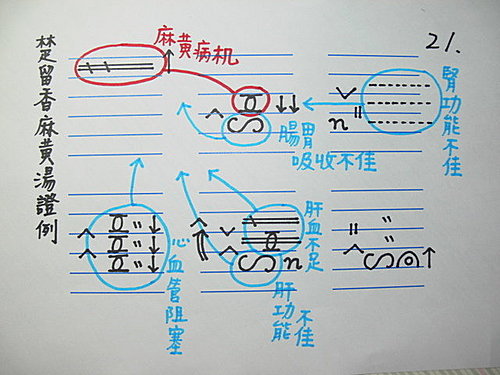 楚留香麻黄湯證例
麻黄病机
21.
腸胃
吸收不佳
腎功能不佳
心血管阻塞
肝血不足
肝功能不佳
n
n